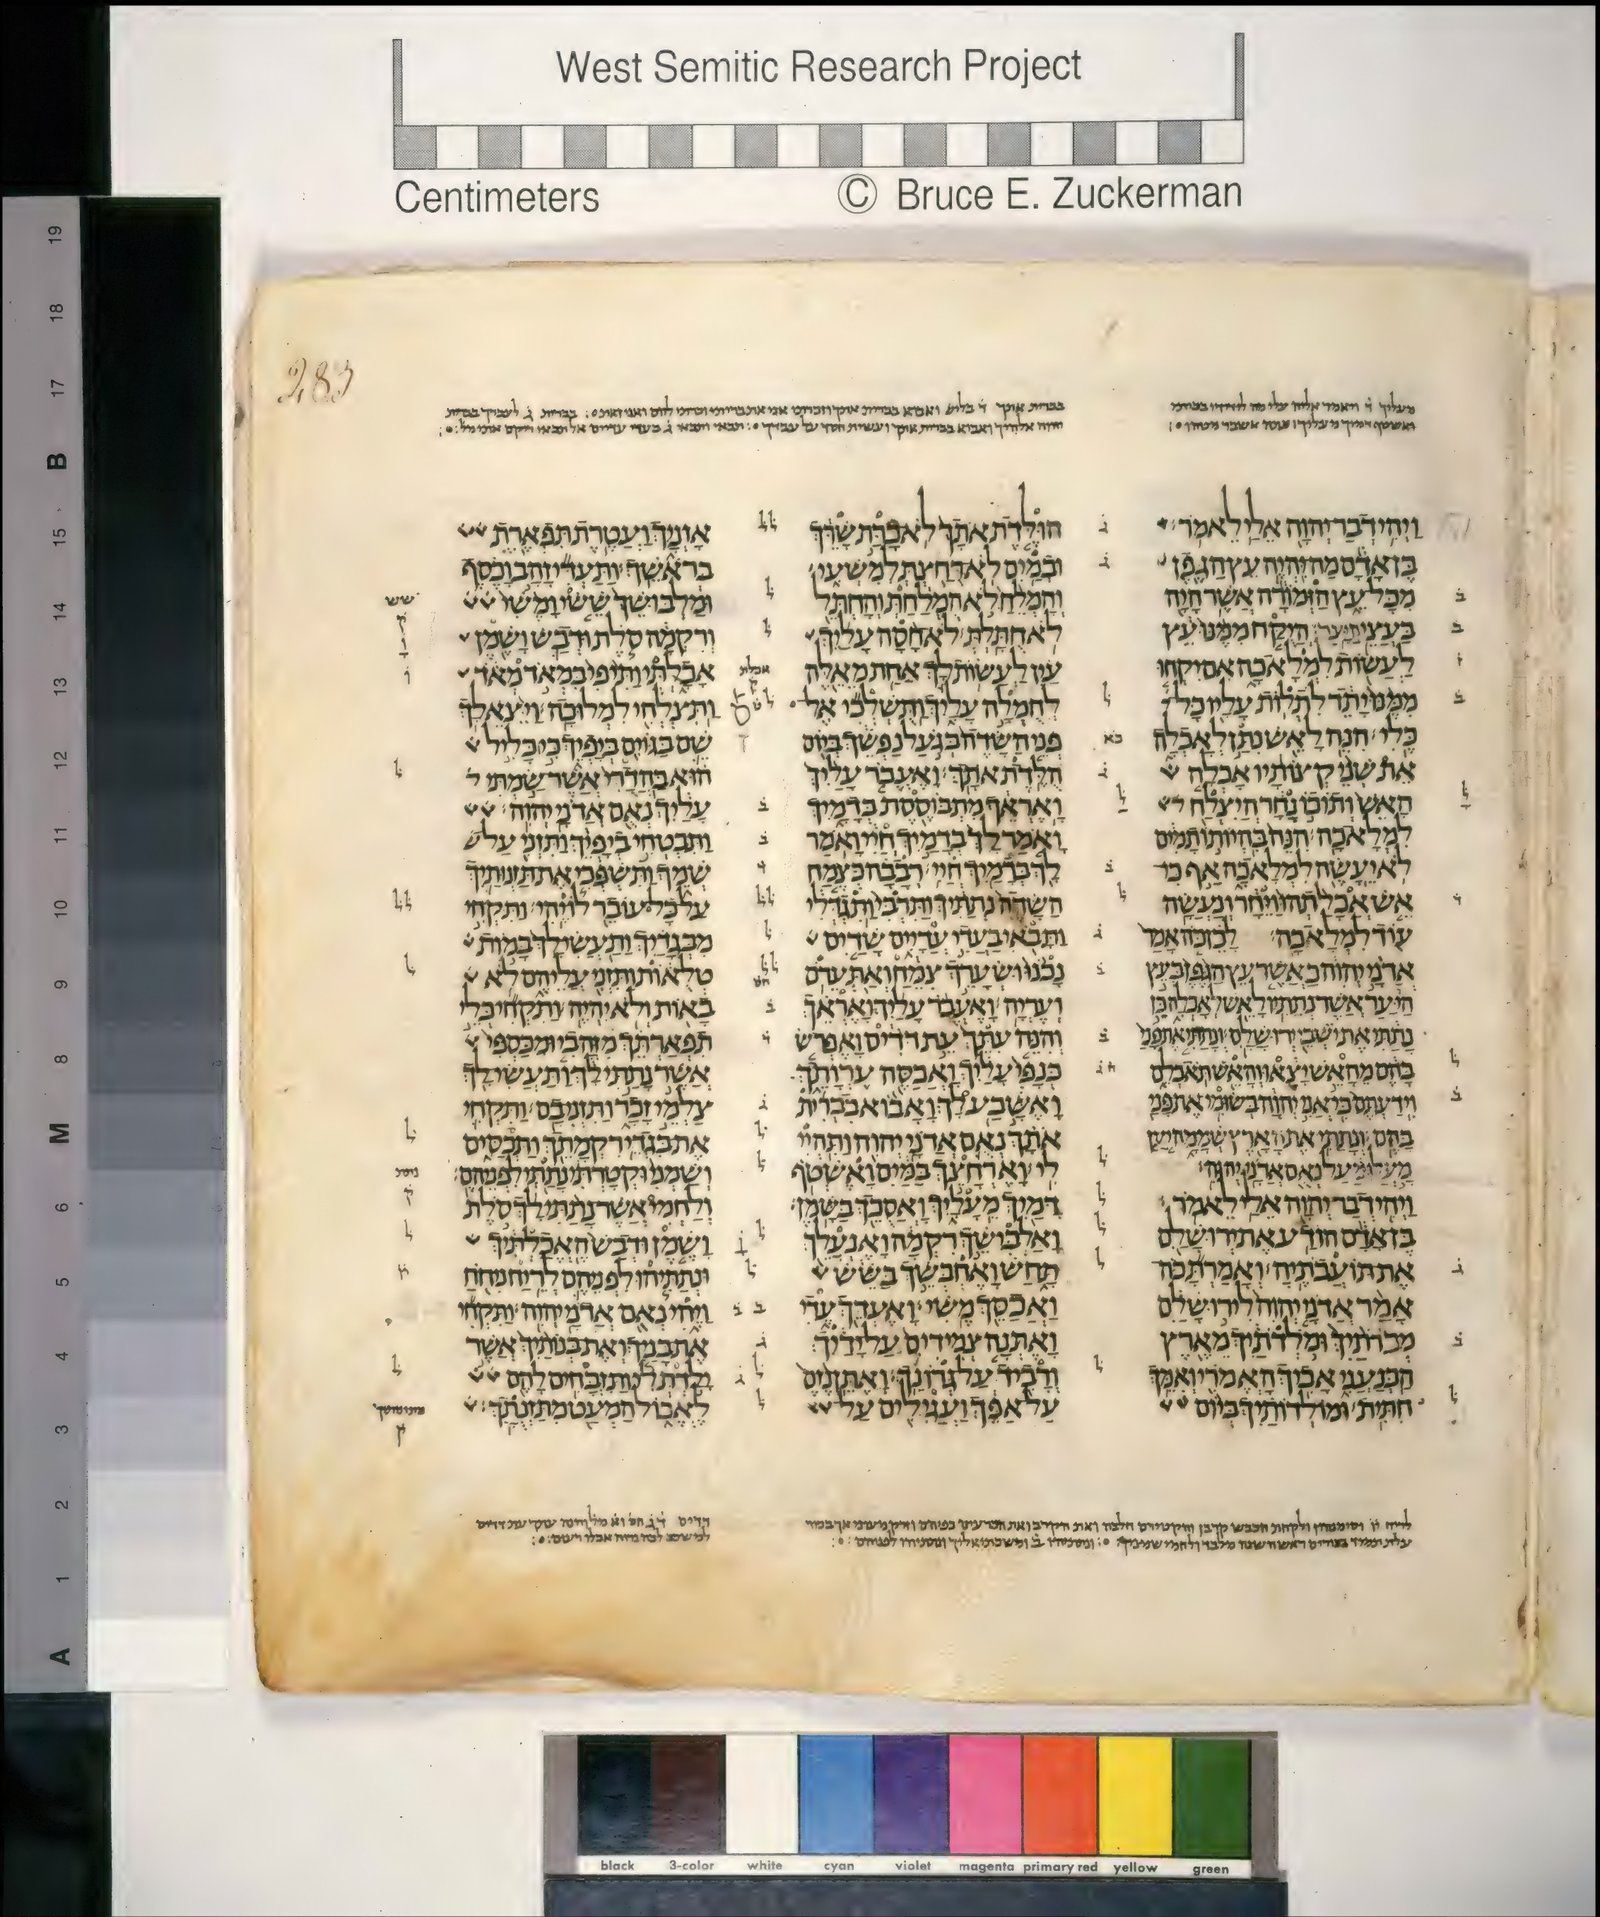 West Semitic Research Project
Centimeters © Bruce E. Zuckerman
283
ויהי דבר יהוה אלי לאמר
בן אדם מה יהיה עץ הגפן
מכל עץ הזמורה אשר היה
בעצי היער היקח ממנו עץ
לעשות למלאכה אם יקחו
ממנו יתד לתלות עליו כל
כלי הנה לאש נתן לאכלה
את שני קצותיו אכלה
האש ותוכו נחר היצלח
למלאכה הנה בהיותו תמים
לא יעשה למלאכה אף כי
אש אכלתהו ויחר ונעשה
עוד למלאכה לכן כה אמר
אדני יהוה כאשר עץ הגפן בעץ
היער אשר נתתיו לאש לאכלה כן
נתתי את ישבי ירושלם ונתתי את פני
בהם מהאש יצאו והאש תאכלם
וידעתם כי אני יהוה בשומי את פני
בהם ונתתי את הארץ שממה יען
מעלו מעל נאם אדני יהוה
ויהי דבר יהוה אלי לאמר
בן אדם הודע את ירושלם
את תועבתיה ואמרת כה
אמר אדני יהוה לירושלם
מכרתיך ומלדתיך מארץ
הכנעני אביך האמרי ואמך
חתית ומולדותיך ביום
הולדת אתך לא כרת שרך
ובמים לא רחצת למשעי
והמלח לא המלחת והחתל
לא חתלת לא חסה עליך
עין לעשות לך אחת מאלה
לחמלה עליך ותשלכי אל
פני השדה בגעל נפשך ביום
הלדת אתך ואעבר עליך
ואראך מתבוססת בדמיך
ואמר לך בדמיך חיי ואמר
לך בדמיך חיי רבבה כצמח
השדה נתתיך ותרבי ותגדלי
ותבאי בעדי עדיים שדים
נכנו ושערך צמח ואת ערם
ועריה ואעבר עליך ואראך
והנה עתך עת דדים ואפרש
כנפי עליך ואכסה ערותך
ואשבע לך ואבוא בברית
אתך נאם אדני יהוה ותהיי
לי וארחצך במים ואשטף
דמיך מעליך ואסכך בשמן
ואלבישך רקמה ואנעלך
תחש ואחבשך בשש
ואכסך משי ואעדך עדי
ואתנה צמידים על ידיך
ורביד על גרונך ואתן נזם
על אפך ועגילים על
אזניך ועטרת תפארת
בראשך ותעדי זהב וכסף
ומלבושך ששי ומשי
ורקמה סלת ודבש ושמן
אכלתי ותיפי במאד מאד
ותצלחי למלוכה ויצא לך
שם בגוים ביפיך כי כליל
הוא בהדרי אשר שמתי
עליך נאם אדני יהוה
ותבטחי ביפיך ותזני על
שמך ותשפכי את תזנותיך
על כל עובר לו יהי ותקחי
מבגדיך ותעשי לך במות
טלאות ותזני עליהם לא
באות ולא יהיה ותקחי כלי
תפארתך מזהבי ומכספי
אשר נתתי לך ותעשי לך
צלמי זכר ותזני בם ותקחי
את בגדי רקמתך ותכסים
ושמני וקטרתי נתתי לפניהם
ולחמי אשר נתתי לך סלת
ושמן ודבש האכלתיך
ונתתיהו לפניהם לריח ניחח
ויהי נאם אדני יהוה ותקחי
את בניך ואת בנותיך אשר
ילדת לי ותזבחים להם
לאכול המעט מתזנתך
black 3-color white cyan violet magenta primary red yellow green
19 18 17 B 15 14 13 12 11 10 9 8 M 6 5 4 3 2 1 A